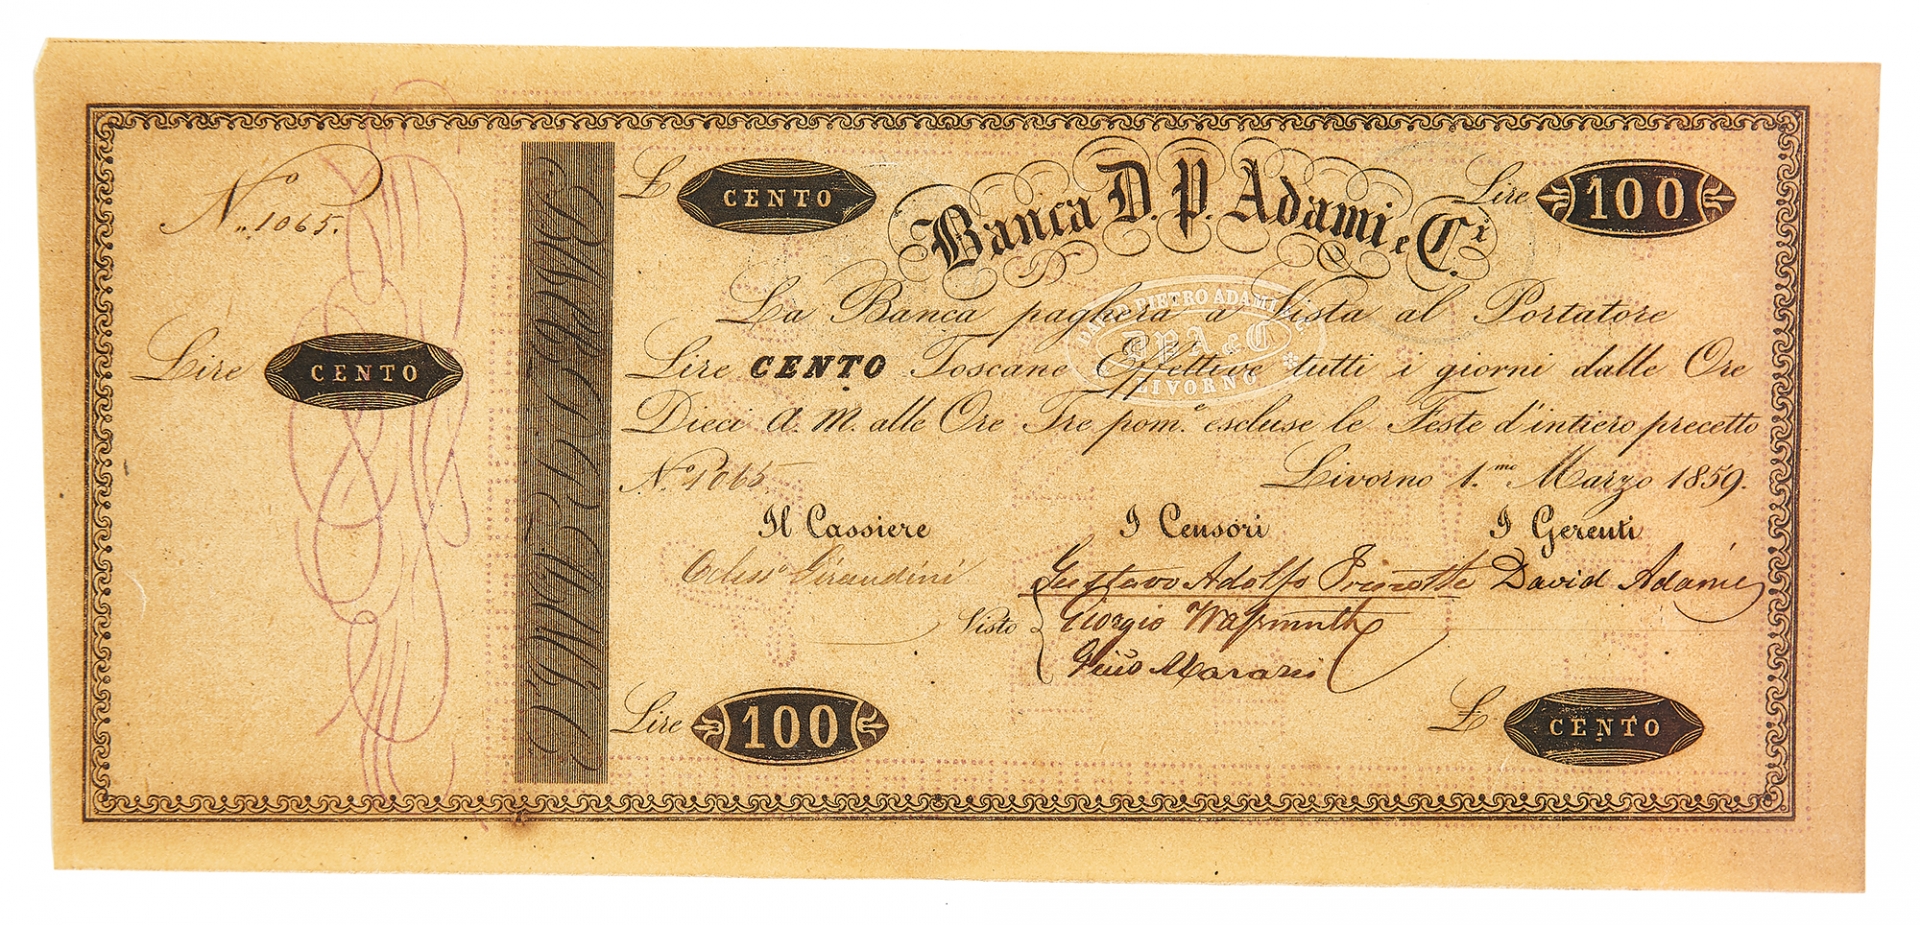 N.º 1065.
Lire CENTO
£ CENTO
Banca D. P. Adami e C.i
Lire 100
La Banca pagherà a Vista al Portatore
Lire CENTO Toscane Effettive tutti i giorni dalle Ore
Dieci A. M. alle Ore Tre pom.e escluse le Feste d'intiero precetto
N.º 1065
Livorno 1.mo Marzo 1859.
Il Cassiere
I Censori
I Gerenti
Girandini
Gustavo Adolfo
David Adami
Visto
Giorgio
Lire 100
£ CENTO
PIETRO ADAMI & C.
D P A & C
LIVORNO